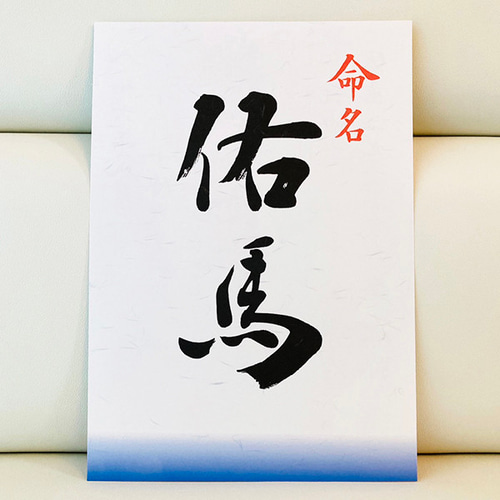 命名
佑馬